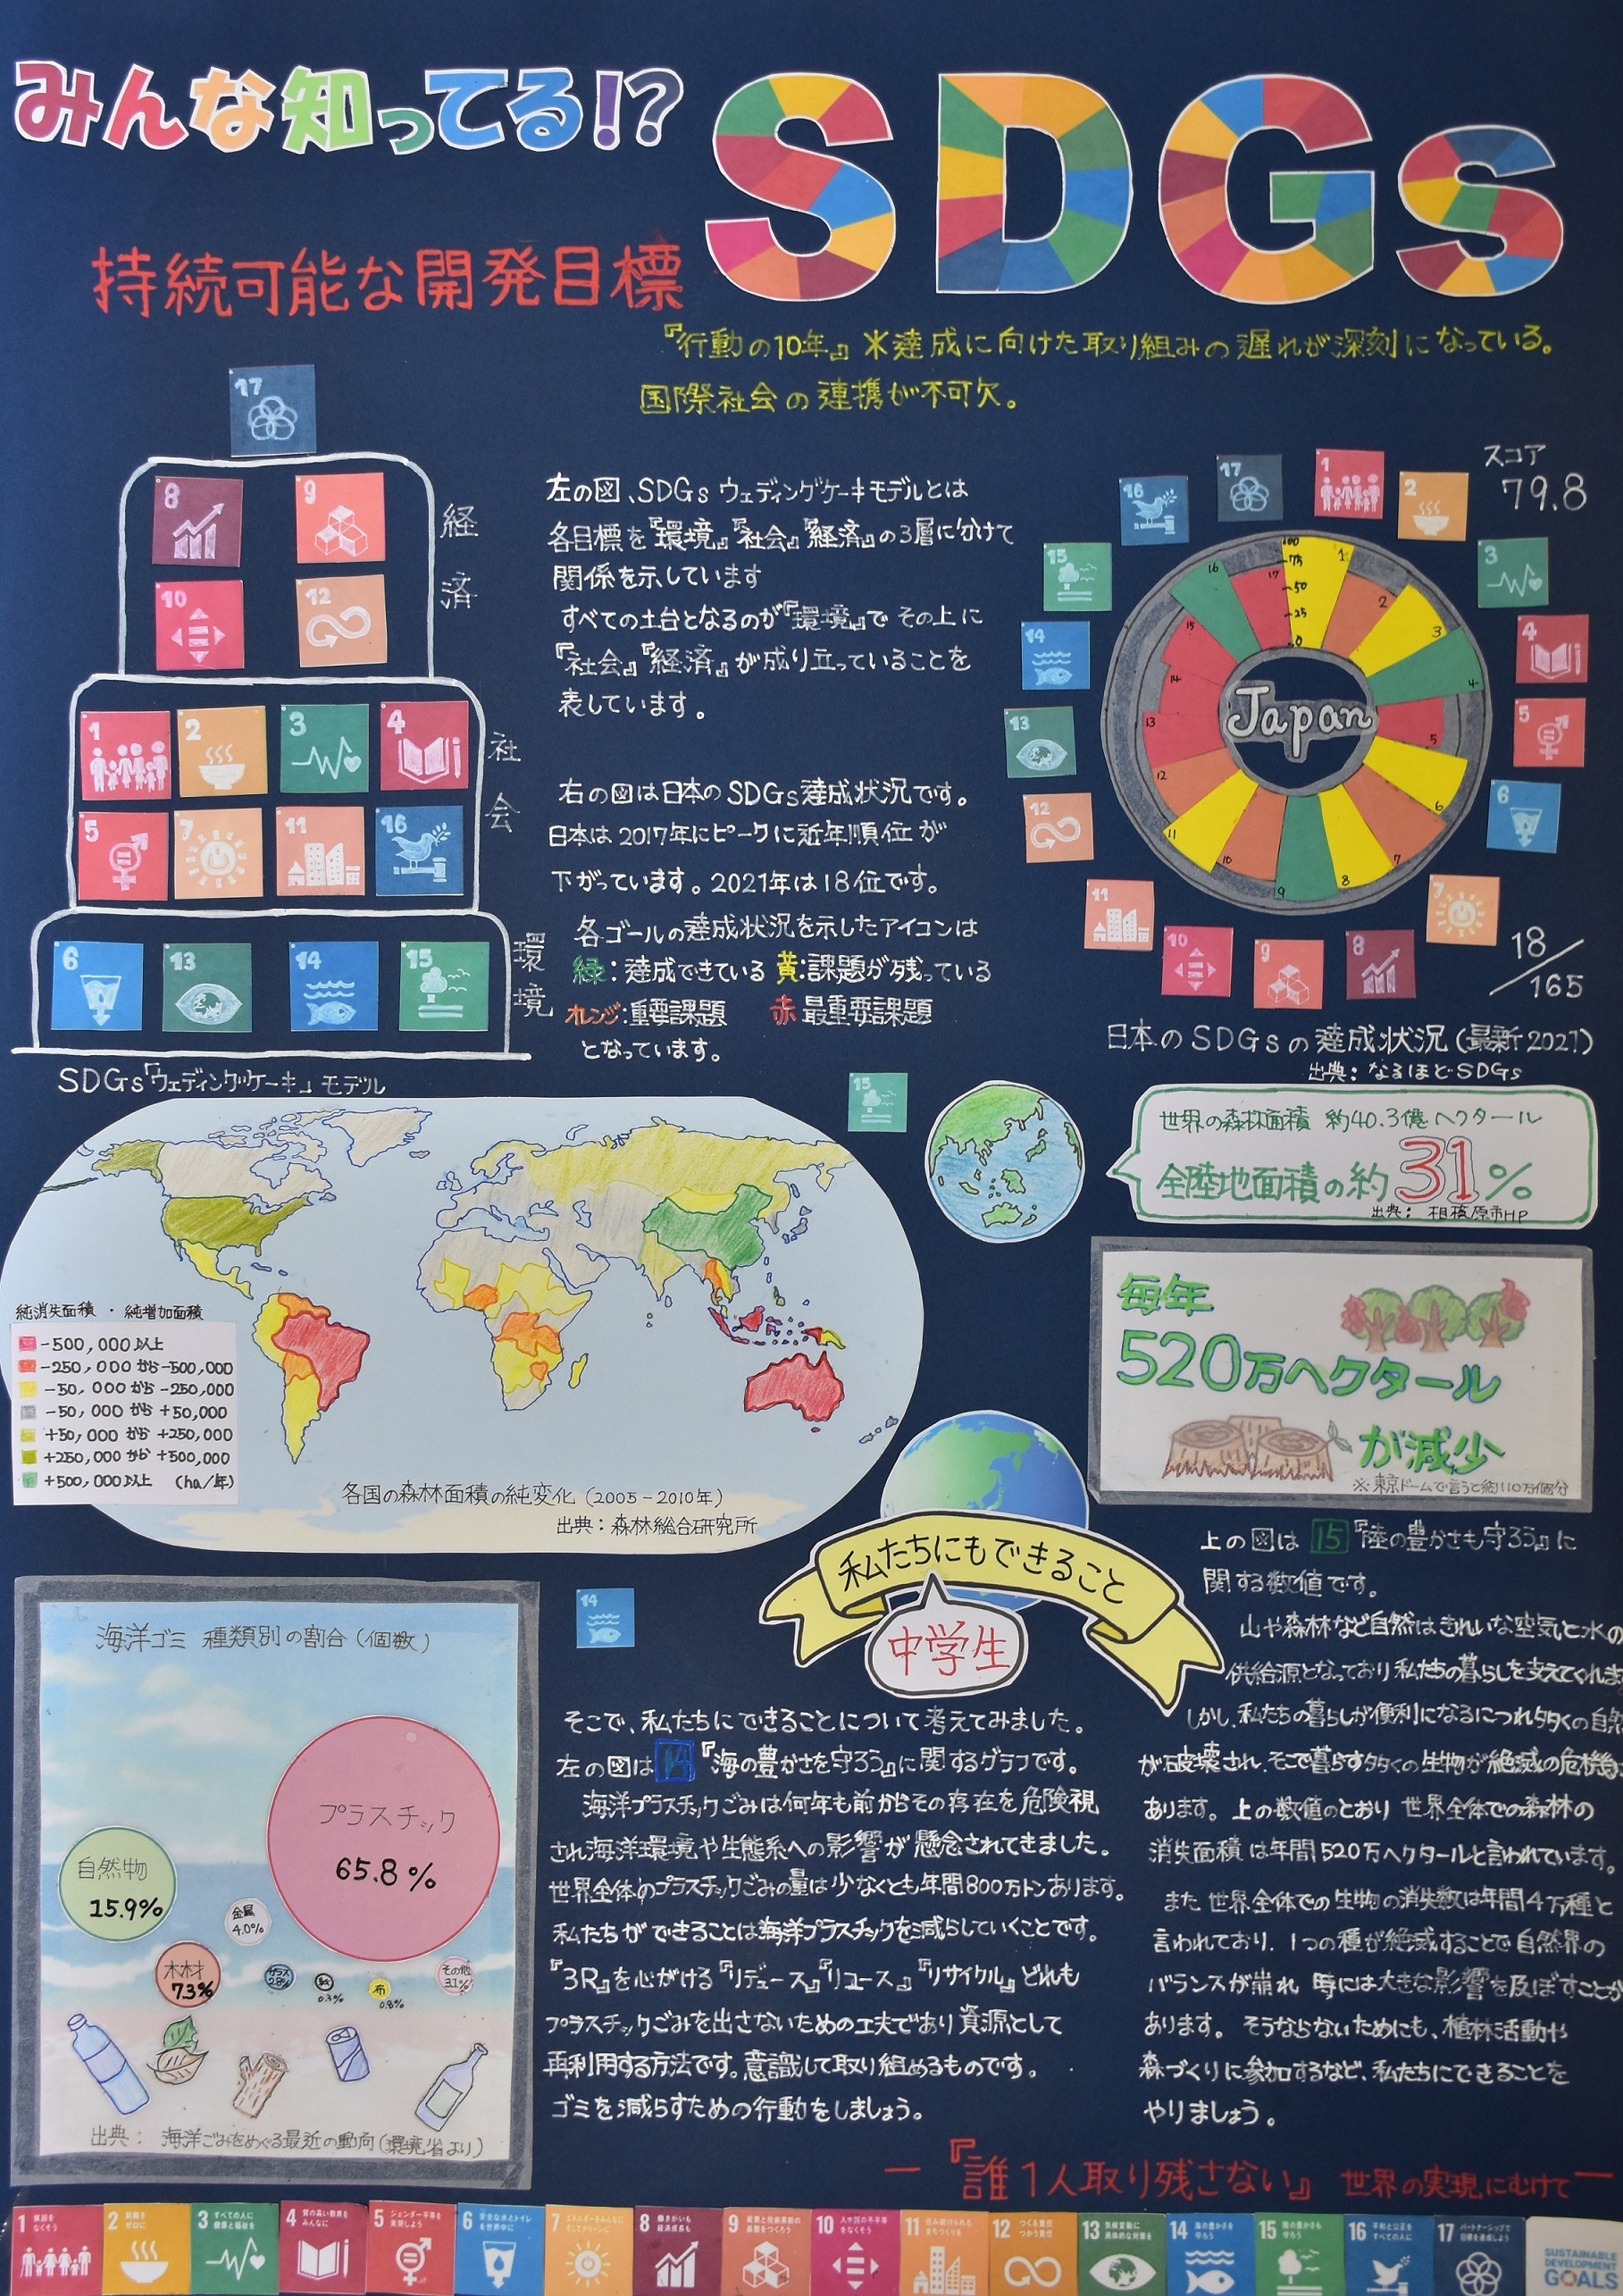 みんな知ってる!?
SDGs
持続可能な開発目標
『行動の10年』※達成に向けた取り組みの遅れが深刻になっている。
国際社会の連携が不可欠。
17
8
9
10
12
経済
1
2
3
4
5
7
11
16
社会
6
13
14
15
環境
SDGs『ウェディングケーキ』モデル
左の図、SDGs ウェディングケーキモデルとは
各目標を『環境』『社会』『経済』の3層に分けて
関係を示しています
すべての土台となるのが『環境』で その上に
『社会』『経済』が成り立っていることを
表しています。
右の図は日本のSDGs達成状況です。
日本は2017年にピークに近年順位が
下がっています。2021年は18位です。
各ゴールの達成状況を示したアイコンは
緑:達成できている 黄:課題が残っている
オレンジ:重要課題 赤 最重要課題
となっています。
スコア
79.8
17
1
2
3
4
5
6
7
8
9
10
11
12
13
14
15
16
100
75
50
25
0
1
2
3
4
5
6
7
8
9
10
11
12
13
14
15
16
17
Japan
18/165
日本のSDGsの達成状況(最新2021)
出典:なるほどSDGs
15
世界の森林面積 約40.3億ヘクタール
全陸地面積の約31%
出典: 相模原市HP
純消失面積・純増加面積
-500,000以上
-250,000から-500,000
-50,000から-250,000
-50,000から+50,000
+50,000から+250,000
+250,000から+500,000
+500,000以上 (ha/年)
各国の森林面積の純変化(2005-2010年)
出典:森林総合研究所
毎年
520万ヘクタール
が減少
※東京ドームで言うと約110万個分
私たちにもできること
中学生
14
海洋ゴミ 種類別の割合(個数)
プラスチック
65.8%
自然物
15.9%
金属
4.0%
木材
7.3%
ガラス
2.8%
紙
0.3%
布
0.8%
その他
3.1%
出典: 海洋ごみをめぐる最近の動向(環境省より)
そこで、私たちにできることについて考えてみました。
左の図は14『海の豊かさを守ろう』に関するグラフです。
海洋プラスチックごみは何年も前からその存在を危険視
され海洋環境や生態系への影響が懸念されてきました。
世界全体のプラスチックごみの量は少なくとも年間800万トンあります。
私たちができることは海洋プラスチックを減らしていくことです。
『3R』を心がける『リデュース』『リユース』『リサイクル』どれも
プラスチックごみを出さないための工夫であり資源として
再利用する方法です。意識して取り組めるものです。
ゴミを減らすための行動をしましょう。
上の図は 15『陸の豊かさも守ろう』に
関する数値です。
山や森林など自然はきれいな空気と水の
供給源となっており私たちの暮らしを支えてくれま
しかし、私たちの暮らしが便利になるにつれ多くの自然
が破壊され、そこで暮らす多くの生物が絶滅の危機に
あります。上の数値のとおり 世界全体での森林の
消失面積は年間520万ヘクタールと言われています。
また 世界全体での生物の消失数は年間4万種と
言われており、1つの種が絶滅することで自然界の
バランスが崩れ 時には大きな影響を及ぼすことが
あります。そうならないためにも、植林活動や
森づくりに参加するなど、私たちにできることを
やりましょう。
ー『誰1人取り残さない』世界の実現にむけてー
1 貧困をなくそう
2 飢餓をゼロに
3 すべての人に健康と福祉を
4 質の高い教育をみんなに
5 ジェンダー平等を実現しよう
6 安全な水とトイレを世界中に
7 エネルギーをみんなにそしてクリーンに
8 働きがいも経済成長も
9 産業と技術革新の基盤をつくろう
10 人や国の不平等をなくそう
11 住み続けられるまちづくりを
12 つくる責任つかう責任
13 気候変動に具体的な対策を
14 海の豊かさを守ろう
15 陸の豊かさも守ろう
16 平和と公正をすべての人に
17 パートナーシップで目標を達成しよう
SUSTAINABLE DEVELOPMENT GOALS